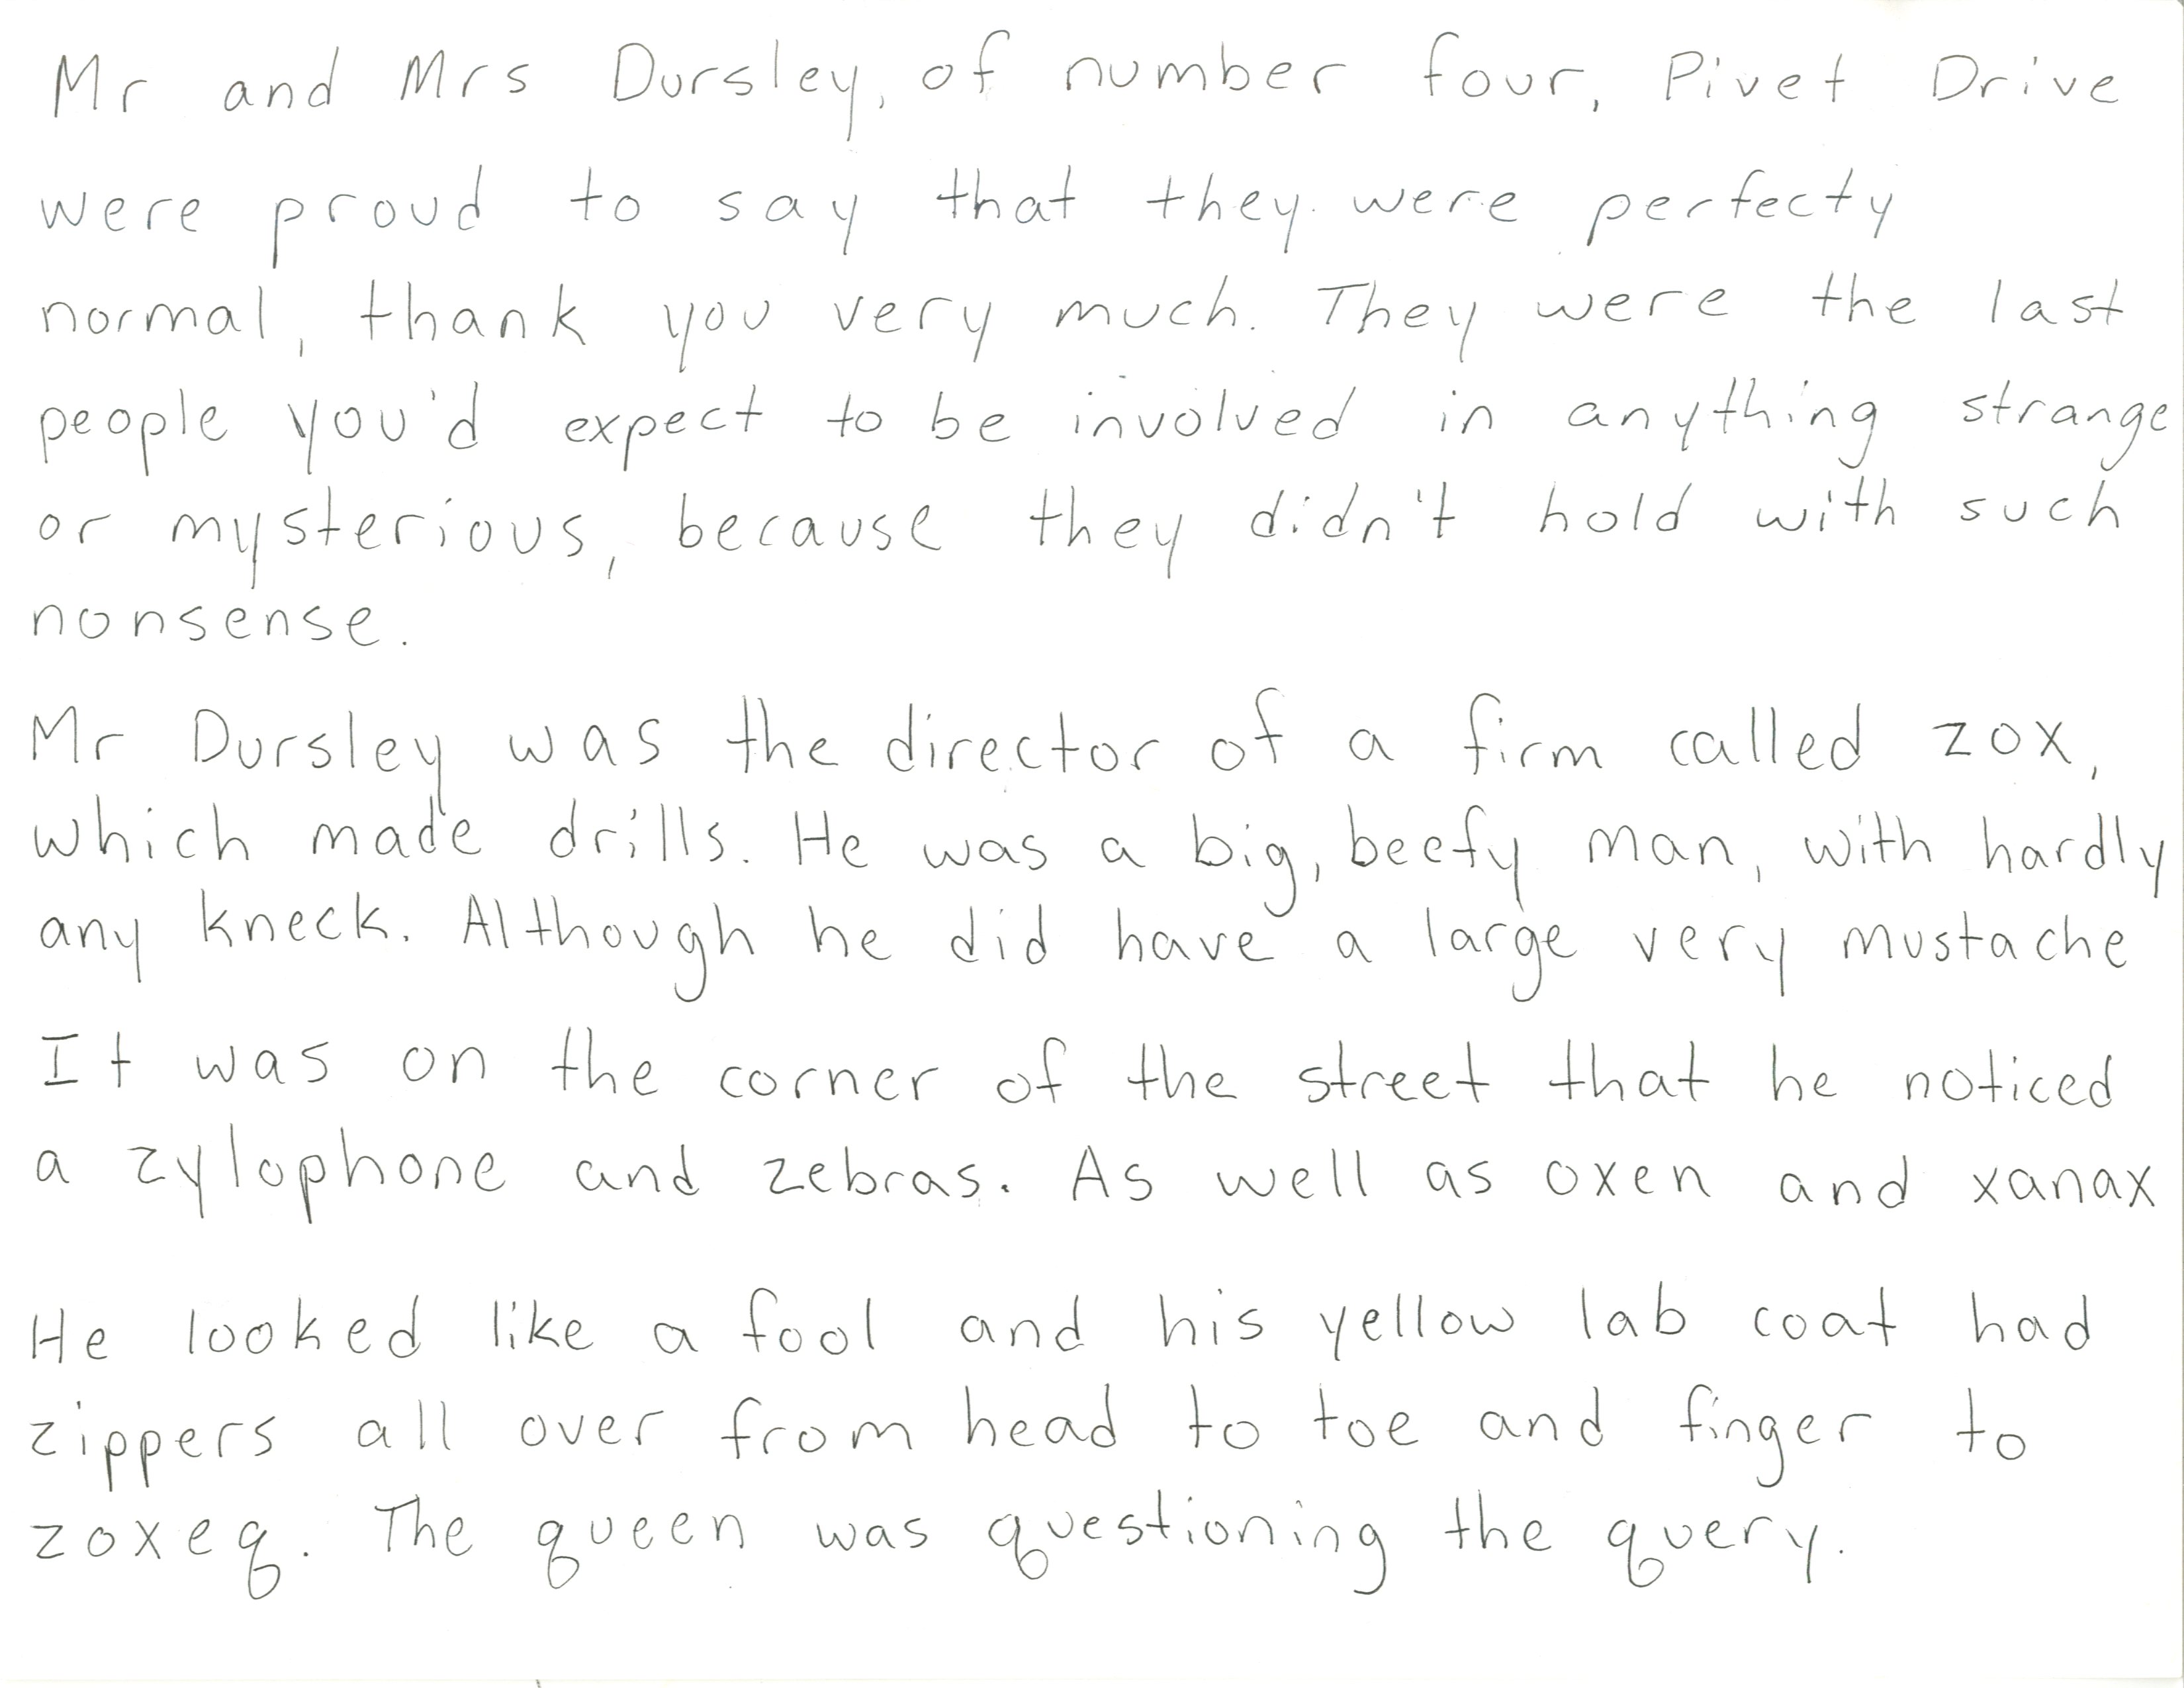 Mr and Mrs Dursley, of number four, Pivet Drive
were proud to say that they were perfecty
normal, thank you very much. They were the last
people you'd expect to be involved in anything strange
or mysterious, because they didn't hold with such
nonsense.
Mr Dursley was the director of a firm called zox,
which made drills. He was a big, beefy man, with hardly
any kneck. Although he did have a large very mustache
It was on the corner of the street that he noticed
a zylophone and zebras. As well as oxen and xanax
He looked like a fool and his yellow lab coat had
zippers all over from head to toe and finger to
zoxeq. The queen was questioning the query.